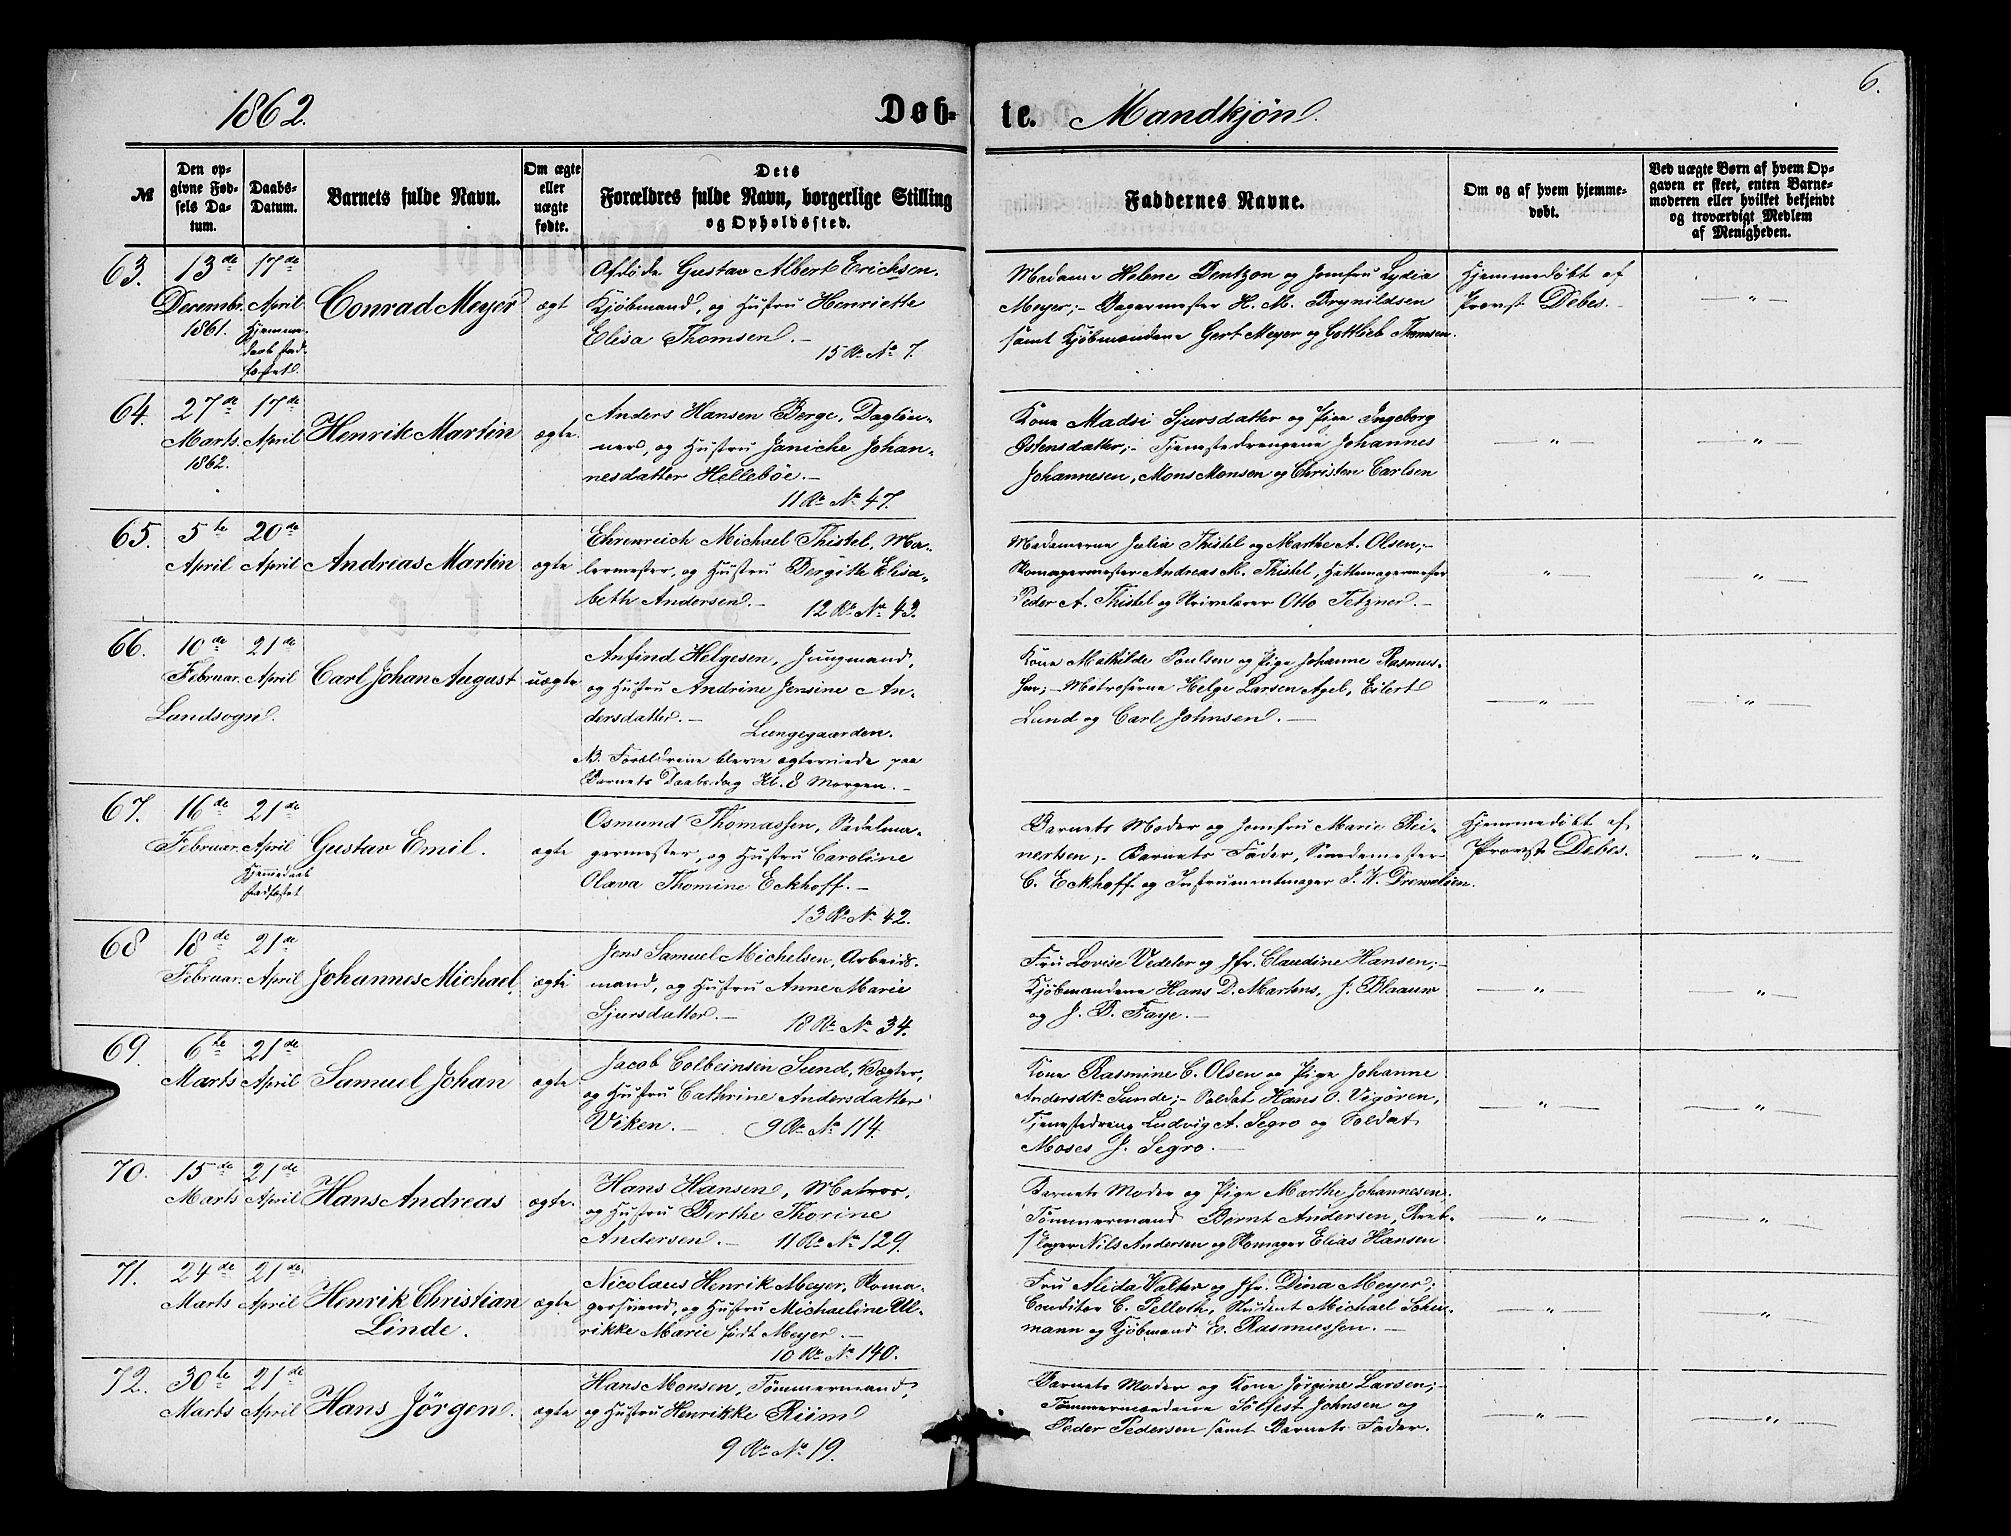 1862.
Døb-
te.
Mandkjøn.
6.
№
Den op-
givne Fød-
sels Da-
tum.
Daabs-
Datum.
Barnets fulde Navn.
Om ægte
eller
uægte
fødte.
Dets
Forældres fulde Navn, borgerlige Stilling
og Opholdssted.
Faddernes Navne.
Om og af hvem hjemme-
døbt.
Ved uægte Børn af hvem Op-
gaven er skeet, enten Barne-
moderen eller hvilket bekjendt
og troværdigt Medlem
af Menigheden.
63.
13de
Decembr.
1861.
17de
April
Hjemme-
daab stad-
fæstet.
Conrad Meyer
ægt
Afdøde Gustav Albert Erichsen,
Kjøbmand, og Hustru Henriette
Elisa Thomsen. -
15 Rd No 7.
Madame Helene Bentzon og Jomfru Lydia
Meyer; - Bagermester H. M. Brynildsen
samt Kjøbmændene Gert Meyer og Gottlieb Thomsen.
Hjemmedøbt af
Provst Debes. -
— " —
64.
27de
Marts
1862.
17de
April
Henrik Martin
ægte.
Anders Hansen Berge, Dagløn-
ner, og Hustru Janiche Johan-
nesdatter Hellebøe. -
11 Rd No 47.
Kone Madsi Sjursdatter og Pige Ingeborg
Østensdatter; - Tjenestedrengene Johannes
Johannesen, Mons Monsen og Christen Carlsen
— " —
— " —
65.
5te
April
20de
April
Andreas Martin
ægte
Ehrenreich Michael Thistel, Ma-
lermester, og Hustru Bergith Elisa-
beth Andersen. -
12 Rd No 43.
Madamerne Julia Thistel og Marthe A. Olsen; -
Skomagermester Andreas M. Thistel, Hattemagermester
Peder A. Thistel og Skrivelærer Otto Tetzner. -
— " —
— " —
66.
10de
Februar.
Landsogn.
21de
April
Carl Johan August
uægte
Anfind Helgesen, Jungmand,
og Hustru Andrine Jensine An-
dersdatter. -
Lungegaarden.
NB. Forældrene bleve ægteviede paa
Barnets Daabsdag Kl. 8 Morgen. -
Kone Mathilde Poulsen og Pige Johanne Rasmus-
sen; - Matroserne Helge Larsen Agel, Eilert
Lund og Carl Johnsen. -
— " —
— " —
67.
16de
Februar.
21de
April
Hjemmedaab
stadfæstet
Gustav Emil.
ægte
Osmund Thomassen, Sadelma-
germester, og Hustru Caroline
Olava Thomine Eckhoff. -
13 Rd No 42.
Barnets Moder og Jomfru Marie Rei-
nertsen; - Barnets Fader, Smedemester
C. Eckhoff og Instrumentmager J. W. Drewelsen.
Hjemmedøbt af
Provst Debes.
— " —
68
18de
Februar.
21de
April
Johannes Michael.
ægte
Jens Samuel Michelsen, Arbeids-
mand, og Hustru Anne Marie
Sjursdatter. -
18 Rd No 34.
Fru Lovise Vedeler og Jfr. Claudine Hansen; -
Kjøbmændene Hans D. Martens, J. Blaauw
og J. B. Faye. -
— " —
— " —
69.
6te
Marts
21de
April
Samuel Johan
ægte
Jacob Colbeinsen Sund, Vægter,
og Hustru Cathrine Andersdatter
Viken. -
9 Rd No 114.
Kone Rasmine C. Olsen og Pige Johanne
Andersdtr Sunde; - Soldat Hans O. Vigøren,
Tjenestedreng Ludvig A. Segro og Soldat
Moses J. Segro. -
— " —
— " —
70.
15de
Marts
21de
April
Hans Andreas
ægte.
Hans Hansen, Matros,
og Hustru Berthe Thorine
Andersen. -
11 Rd No 129.
Barnets Moder og Pige Marthe Johannesen;
Tømmermand Bernt Andersen, Reeb-
slager Nils Andersen og Skomager Elias Hansen
— " —
— " —
71.
24de
Marts
21de
April
Henrik Christian
Linde.
ægte
Nicolaus Henrik Meyer, Skoma-
gersvend, og Hustru Michaeline Ul-
rikke Marie født Meyer. -
10 Rd No 140.
Fru Alida Walter og Jfr. Dina Meyer;
Conditor C. Pelloth, Student Michael Schu-
mann og Kjøbmand E. Rasmussen. -
— " —
— " —
72.
30te
Marts
21de
April
Hans Jörgen.
ægte
Hans Monsen, Tömmermand,
og Hustru Henrikke Riim
9 Rd No 19.
Barnets Moder og Kone Jørgine Larsen; -
Tömmermændene Sölfest Johnsen og
Peder Pedersen samt Barnets Fader.
— " —
— " —